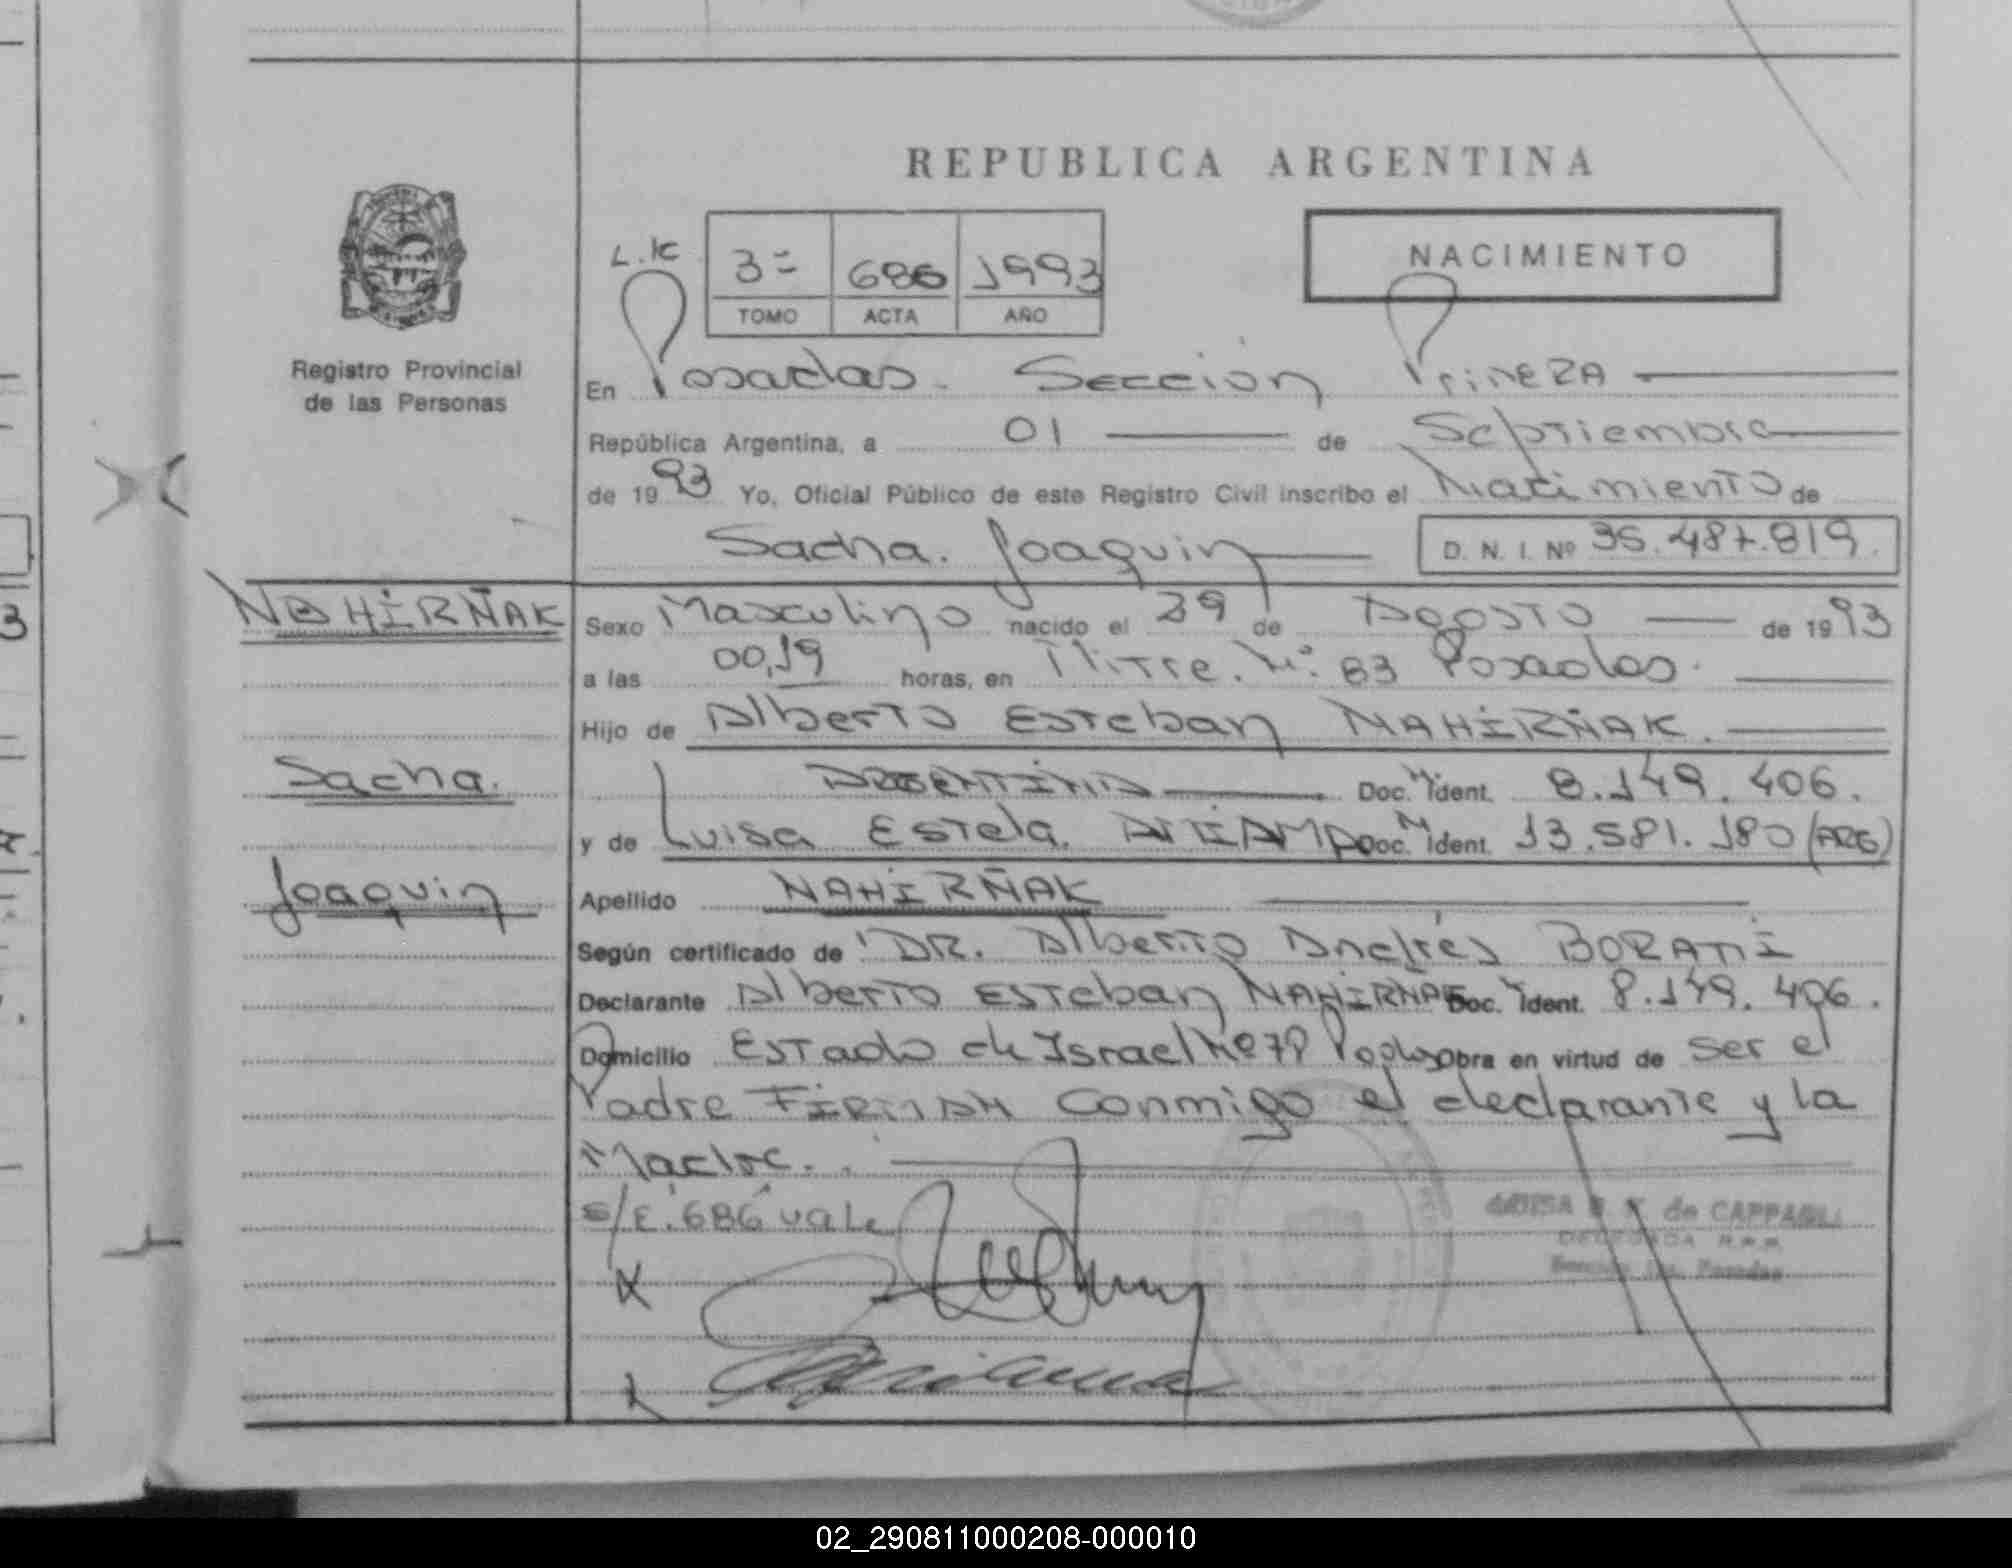 REPUBLICA ARGENTINA
L.K
3= 686 1993
TOMO ACTA AÑO
NACIMIENTO
Registro Provincial
de las Personas
En Posadas. Sección Primera
República Argentina, a 01 de Septiembre
de 1993 Yo, Oficial Público de este Registro Civil inscribo el Nacimiento de
Sacha. Joaquin D. N. I. Nº 35.487.819.
NAHIRÑAK
Sexo Masculino nacido el 29 de Agosto de 1993
a las 00,19 horas, en Mitre. Nº. 83 Posadas.
Hijo de Alberto Esteban NAHIRÑAK.
Sacha.
ARGENTINA Doc. M Ident. 8.149.406.
y de Luisa Estela. Doc. M Ident. 13.581.180 (ARG)
Joaquin
Apellido NAHIRÑAK
Según certificado de DR. Alberto Andrés
Declarante Alberto Esteban NAHIRÑAK Doc. M Ident. 8.149.406.
Domicilio Estado de Israel Nº Obra en virtud de ser el
Padre FIRMAN conmigo el declarante y la
Madre.
s/E. 686 vale
de CAPPAGLI
DELEGADA R.P.P.
Sección 1ra. Posadas
3
02_290811000208-000010